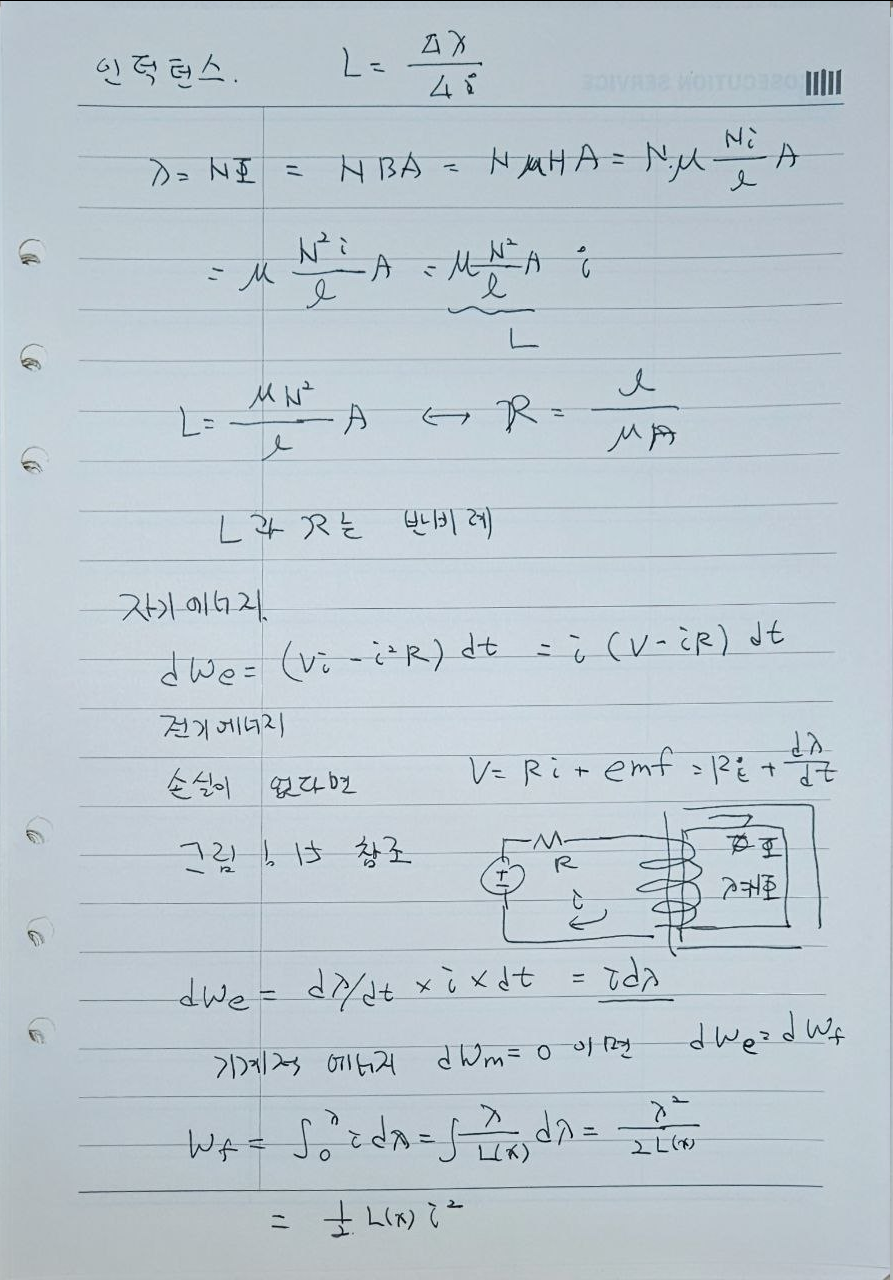 인덕턴스. L = Δλ/Δi
λ = NΦ = NBA = NμHA = N·μ Ni/l A
= μ N²i/l A = μ N²/l A i
L
L = μN²/l A ↔ ℛ = l/μA
L과 ℛ는 반비례
자기에너지.
dWe = (Vi - i²R) dt = i (V - iR) dt
전기에너지
V = Ri + emf = Ri + dλ/dt
손실이 없다면
그림 1.15 참조
R
i
Φ
λ=NΦ
dWe = dλ/dt × i × dt = idλ
기계적 에너지 dWm = 0 이면 dWe = dWf
Wf = ∫₀^λ i dλ = ∫ λ/L(x) dλ = λ²/2L(x)
= 1/2 L(x) i²